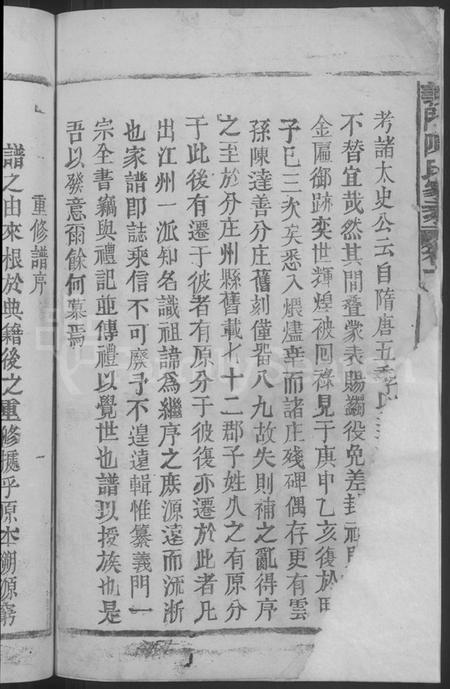 考諸太史公云自隋唐五季
不替宜哉然其間叠蒙表賜蠲役免差封
金匾御跡奕世輝煌被回祿見于庚申乙亥復於
子巳三次矣悉入煨盡幸而諸庄殘碑偶存更有雲
孫陳達善分庄舊刻僅畧八九故失則補之亂得序
之至於分庄州縣舊載七十二郡子姓久之有原分
于此後有遷于彼者有原分于彼復亦遷於此者凡
出江州一派知名識祖諦為繼序之庶源遠而流淅
也家譜即誌乘信不可廢予不遑遠輯惟纂義門一
宗全書竊與禮記並傳禮以覺世也譜以援族也是
吾以發意爾餘何慕焉
重修譜序
譜之由來根於典籍後之重修攄乎原本溯源窮